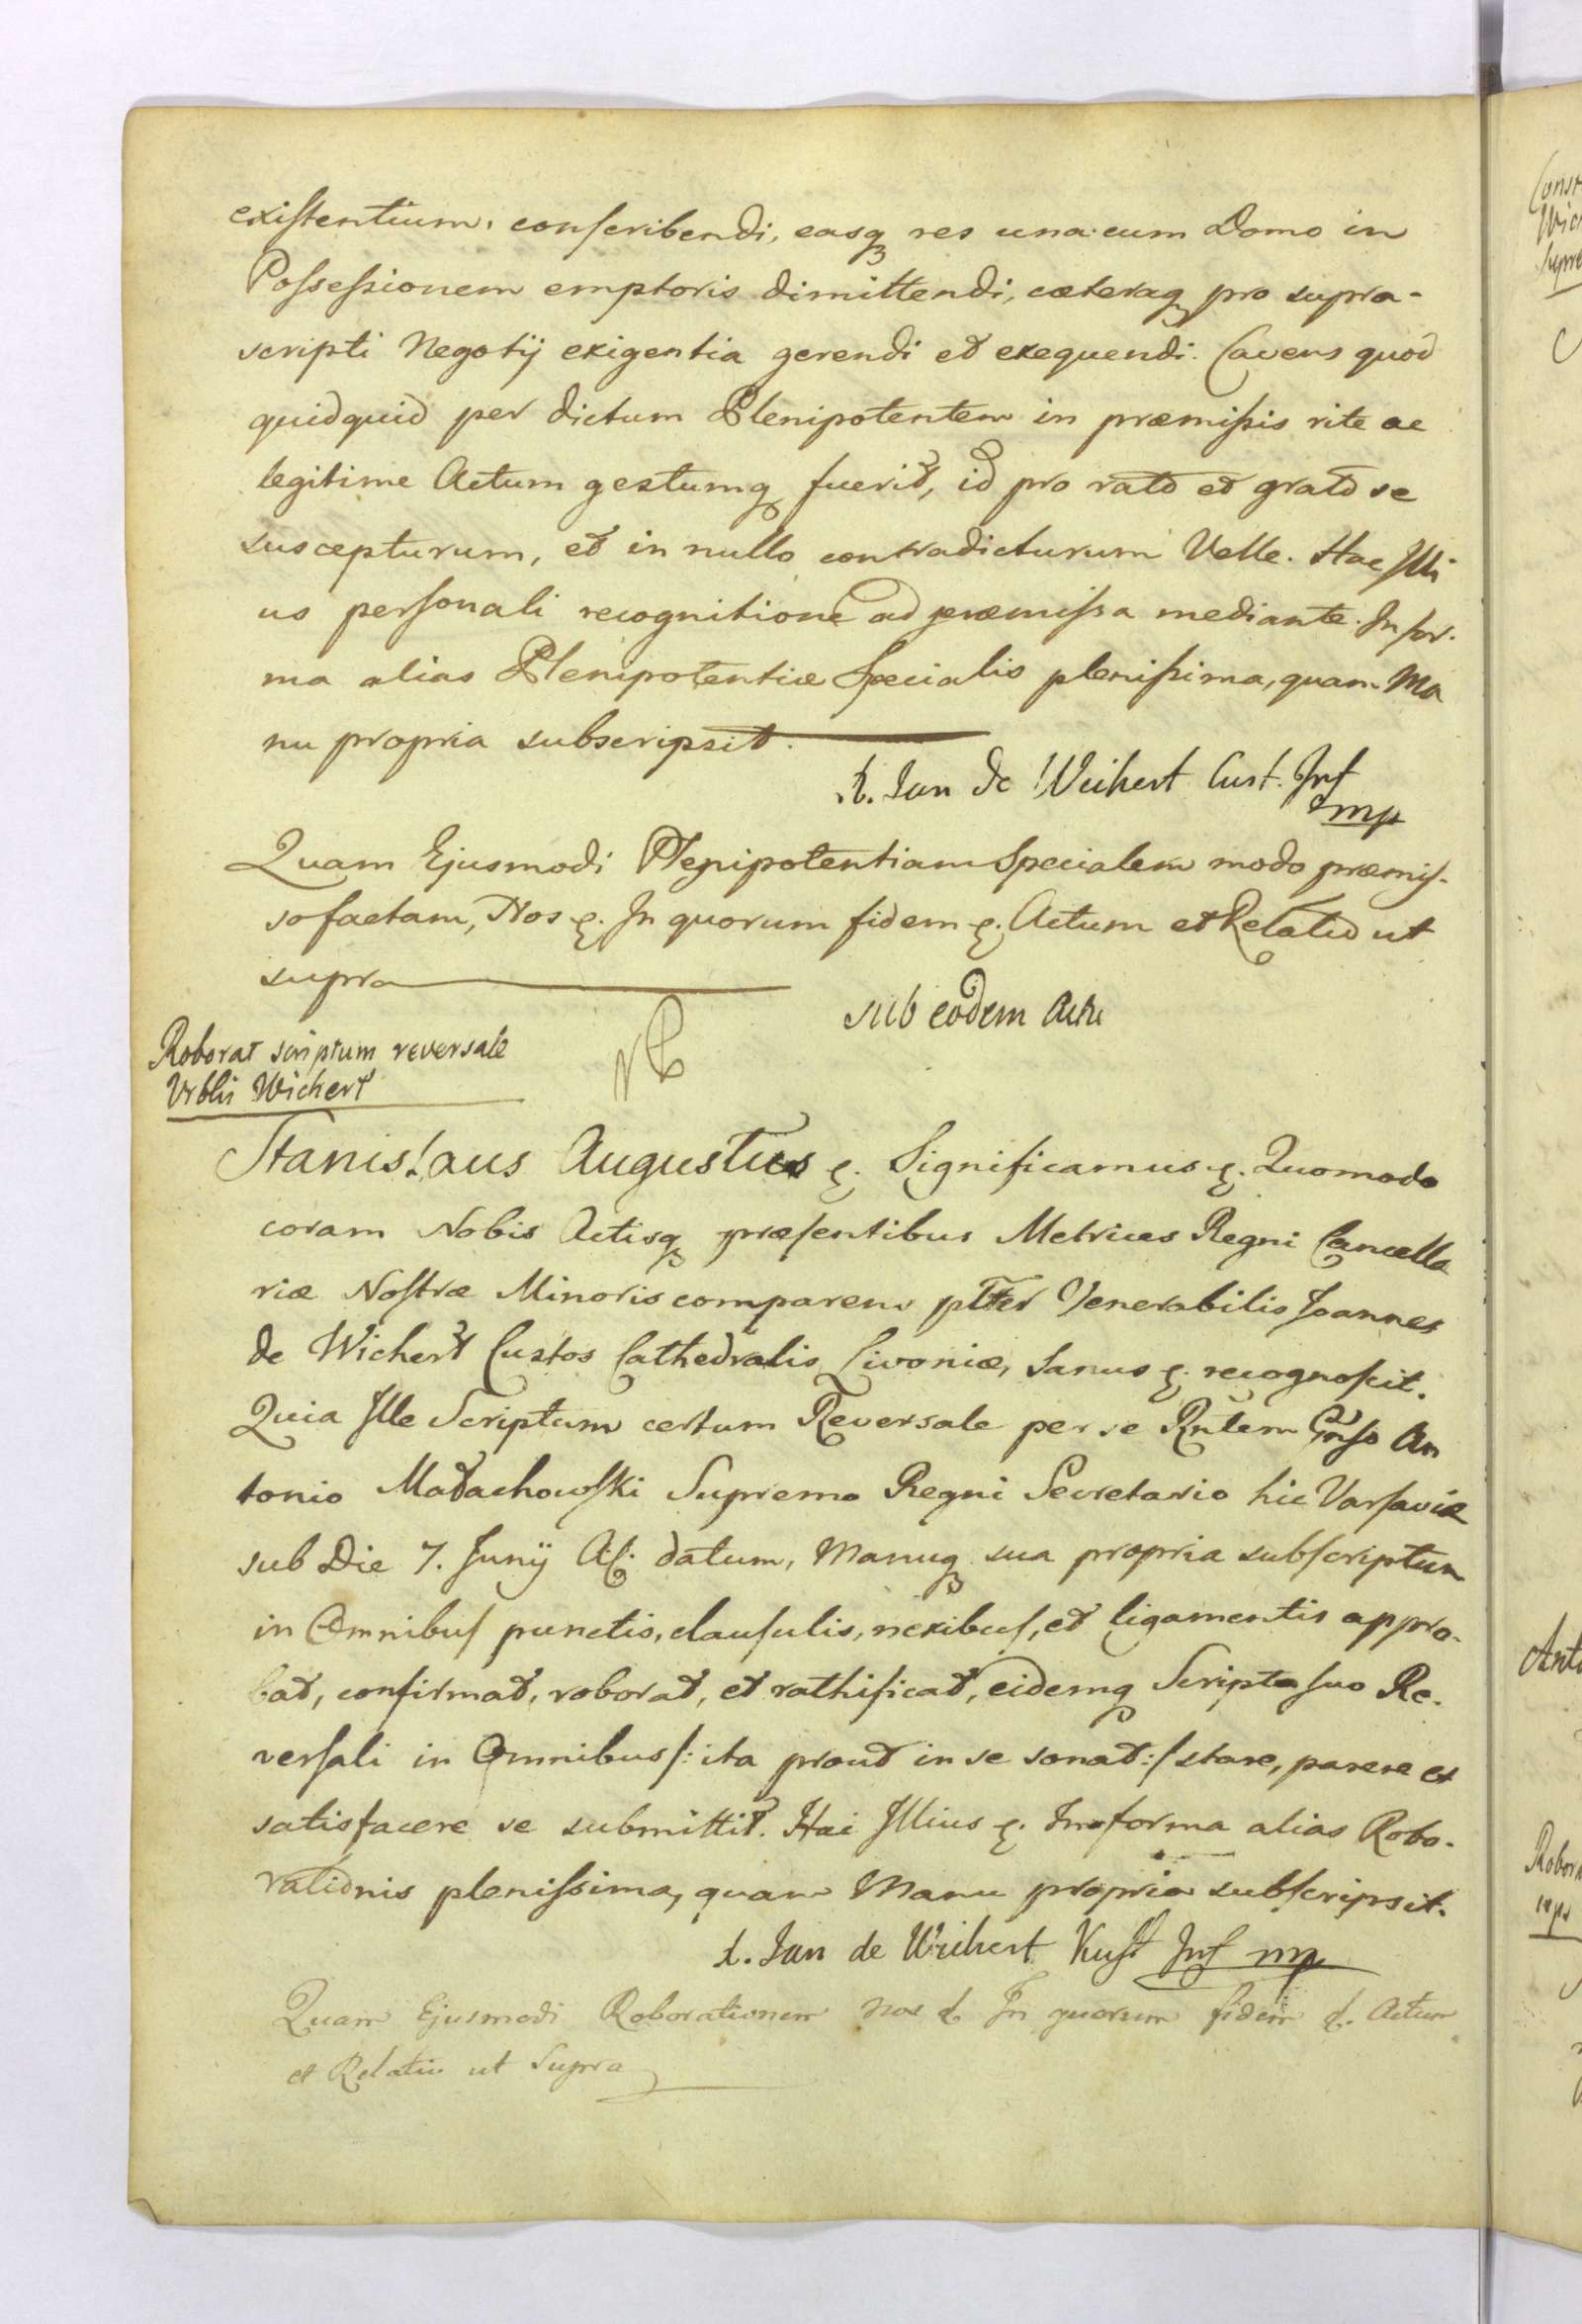 existentium, conscribendi, easq res una cum Domo in
Possessionem emptoris dimittendi, cæteraq pro supra-
scripti Negotij exigentia gerendi et exequendi. Cavens quod
quidquid per dictum Plenipotentem in præmissis rite ac
legitime Actum gestumq fuerit, id pro rato et grato se
suscepturum, et in nullo contradicturum Velle. Hac Illi
us personali recognitione ad præmissa mediante. In for-
ma alias Plenipotentiæ Specialis plenissima, quam Ma
nu propria subscripsit.
X. Jan de Weihert Cust. Inf
mp
Quam Ejusmodi Plenipotentiam Specialem modo præmis-
so factam, Nos &. In quorum fidem &. Actum et Relatio ut
supra
sub eodem Actu
Roborat scriptum reversale
Vrblis Wichert
Stanislaus Augustus &. Significamus &. Quomodo
coram Nobis Actisq præsentibus Metrices Regni Cancella
riæ Nostræ Minoris comparens plter Venerabilis Joannes
de Wichert Custos Cathedralis Livoniæ, Sanus &. recognoscit.
Quia Ille Scriptum certum Reversale per se Rntem Gnso An
tonio Małachowski Supremo Regni Secretario hic Varsaviæ
sub Die 7. Junij A. datum, Manuq sua propria subscriptum
in Omnibus punctis, clausulis, nexibus, et ligamentis appro-
bat, confirmat, roborat, et rathificat, eidemq Scripto suo Re-
versali in Omnibus /: ita prout in se sonat :/ stare, parere et
satisfacere se submittit. Hac Illius &. In forma alias Robo-
rationis plenissima, quam Manu propria subscripsit.
X. Jan de Weihert Kust Inf mp
Quam Ejusmodi Roborationem nos &. In quorum fidem &. Actum
et Relatio ut Supra